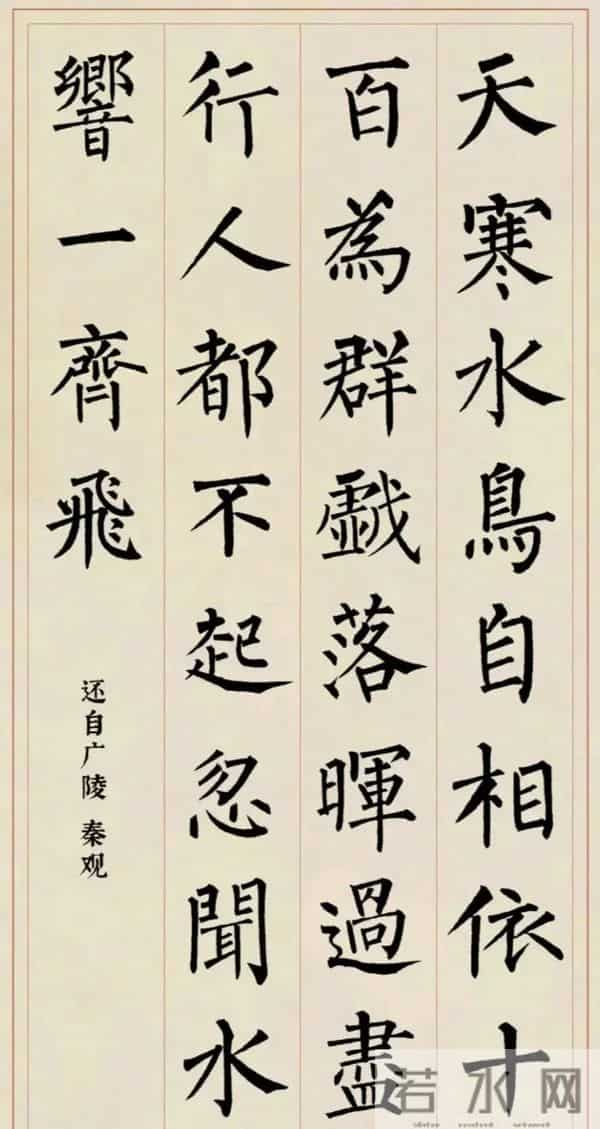 天寒水鳥自相依十
百為群戲落暉過盡
行人都不起忽聞水
響一齊飛
还自广陵 秦观
若水网